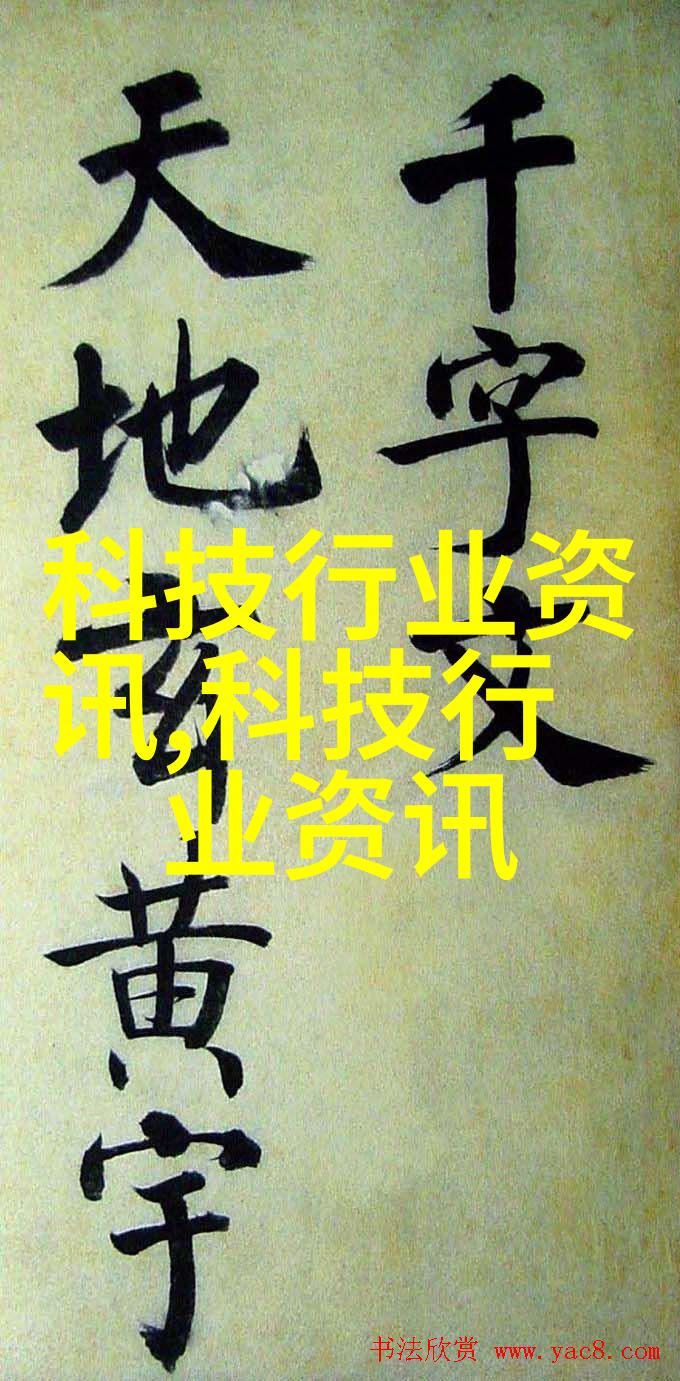 千字文
天地玄黄宇
科技行业资
讯,科技行
业资讯
书法欣赏 www.yac8.com